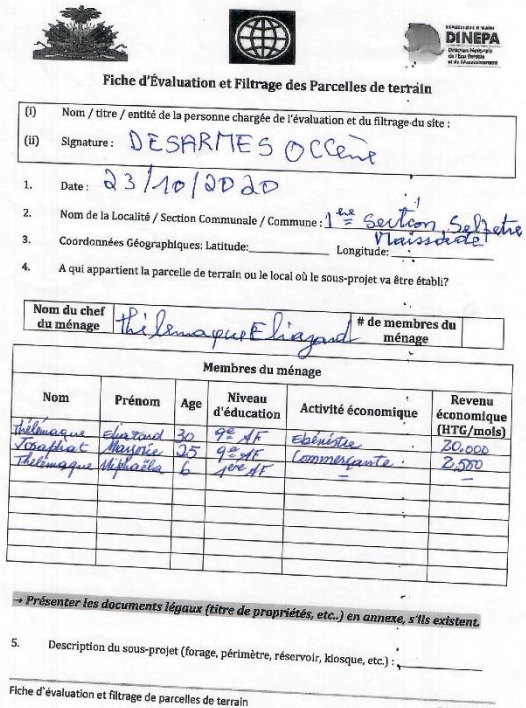 RÉPUBLIQUE D'HAÏTI
DINEPA
Direction Nationale
de l'Eau Potable
et de l'Assainissement
Fiche d'Évaluation et Filtrage des Parcelles de terrain
(i) Nom / titre / entité de la personne chargée de l'évaluation et du filtrage du site :
(ii) Signature : DESARMES OCCène
1. Date : 23/10/2020
2. Nom de la Localité / Section Communale / Commune : 1ère Section, Selpetre
Maissade
3. Coordonnées Géographiques: Latitude: Longitude:
4. A qui appartient la parcelle de terrain ou le local où le sous-projet va être établi?
Nom du chef du ménage Thélemaque Eliazard # de membres du ménage
Membres du ménage
Nom Prénom Age Niveau d'éducation Activité économique Revenu économique (HTG/mois)
Thélemaque Eliazard 30 9e AF Ebéniste 20.000
Josaphat Marjorie 25 9e AF Commerçante 2,500
Thélemaque Miphaëla 6 1ère AF – –
→ Présenter les documents légaux (titre de propriétés, etc..) en annexe, s'ils existent.
5. Description du sous-projet (forage, périmètre, réservoir, kiosque, etc.) :
Fiche d'évaluation et filtrage de parcelles de terrain